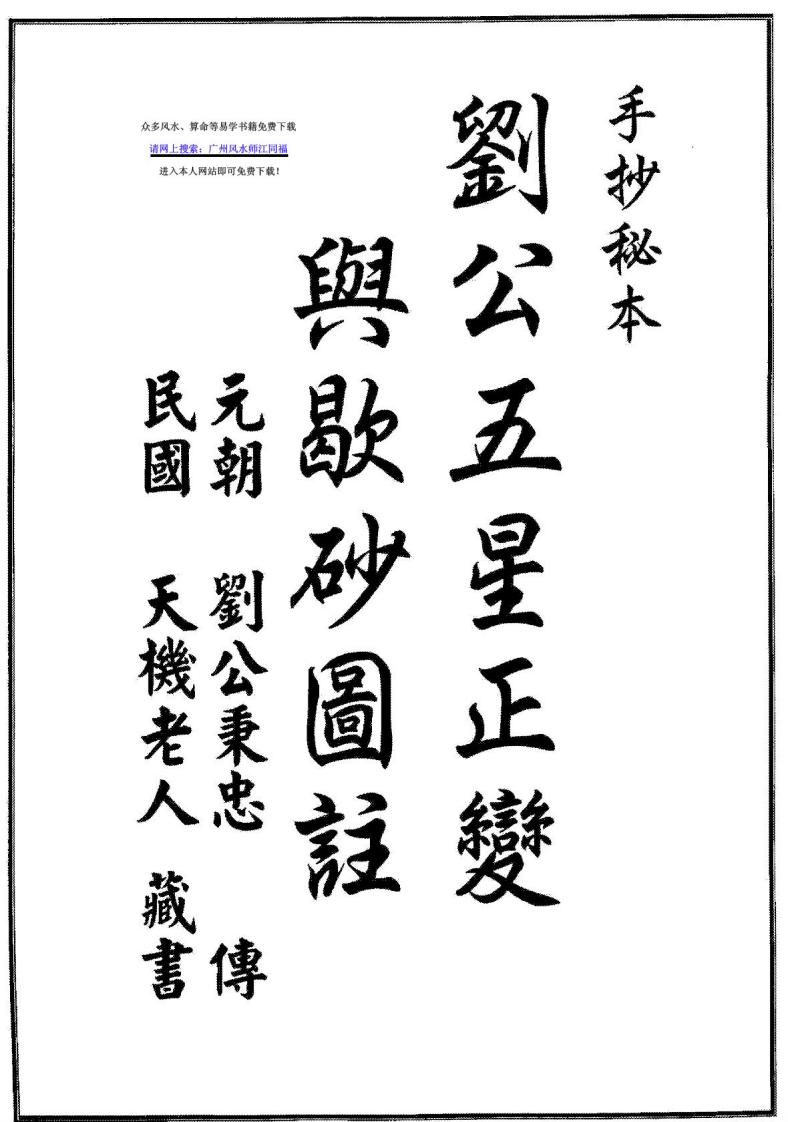 手抄秘本
劉公五星正變
與歇砂圖註
元朝 劉公秉忠 傳
民國 天機老人 藏書
众多风水、算命等易学书籍免费下载
请网上搜索：广州风水师江同福
进入本人网站即可免费下载！